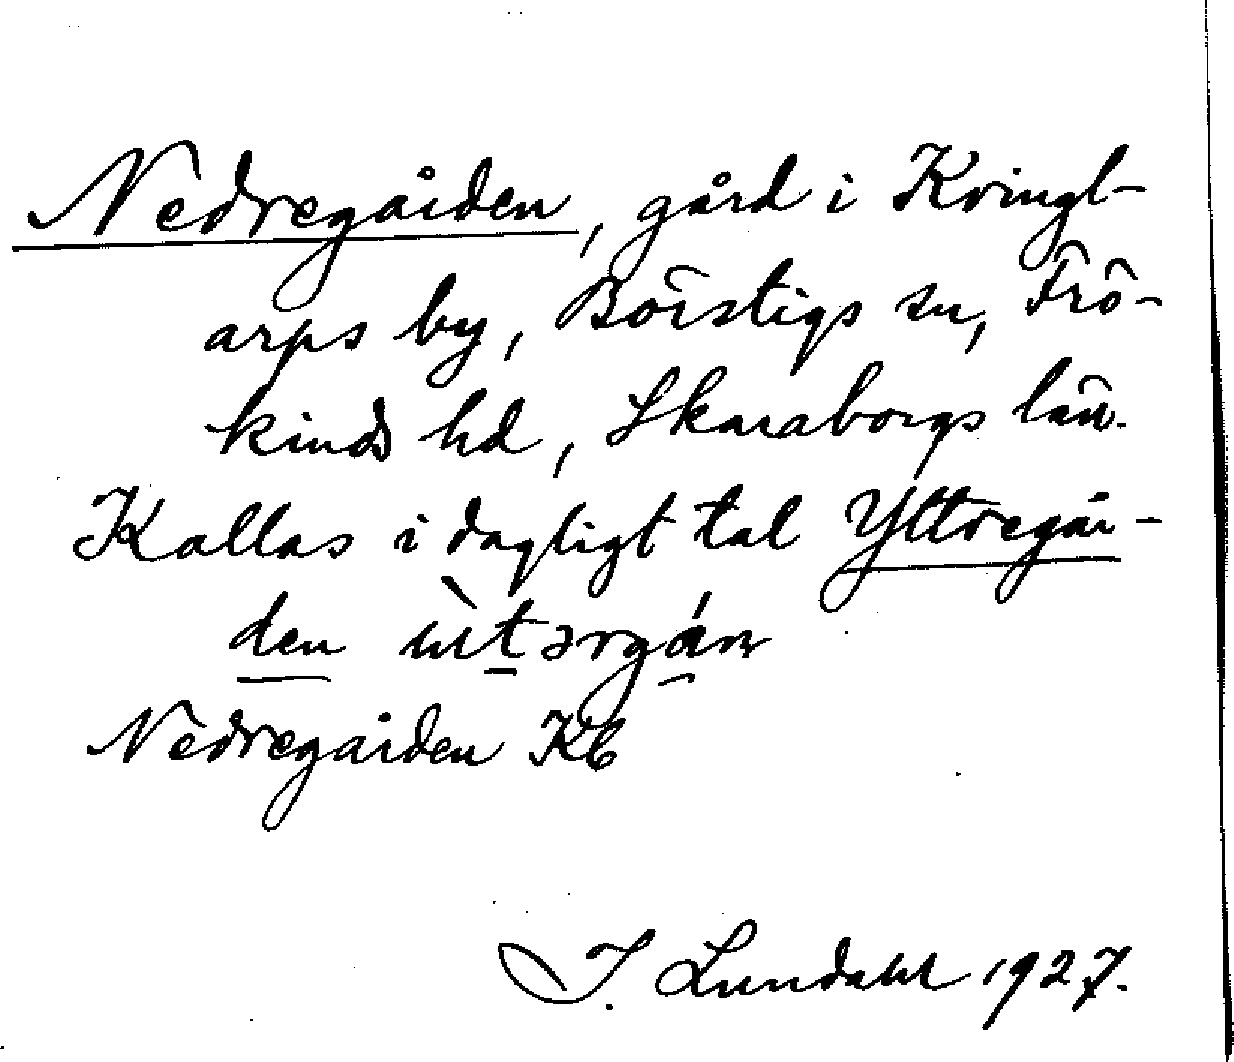 Nedregården, gård i Kringl-
arps by, Börstigs sn, Frö-
kinds hd, Skaraborgs län.
Kallas i dagligt tal Yttregår-
den
Nedregården Kb
I. Lundahl 1927.